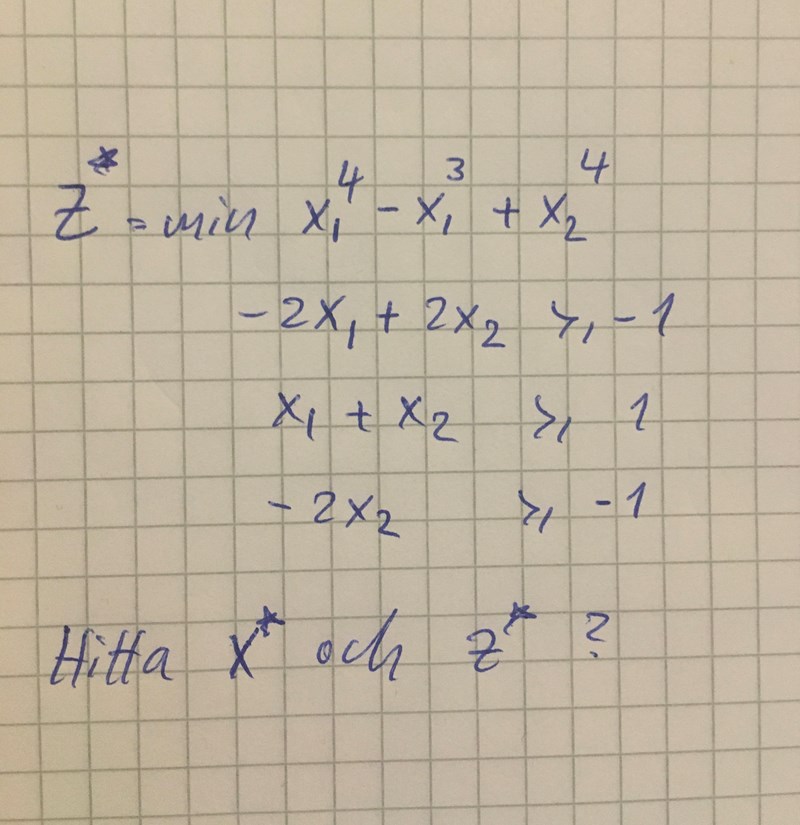 Z* = min x₁⁴ - x₁³ + x₂⁴
-2x₁ + 2x₂ ≥ -1
x₁ + x₂ ≥ 1
-2x₂ ≥ -1
Hitta x* och z* ?